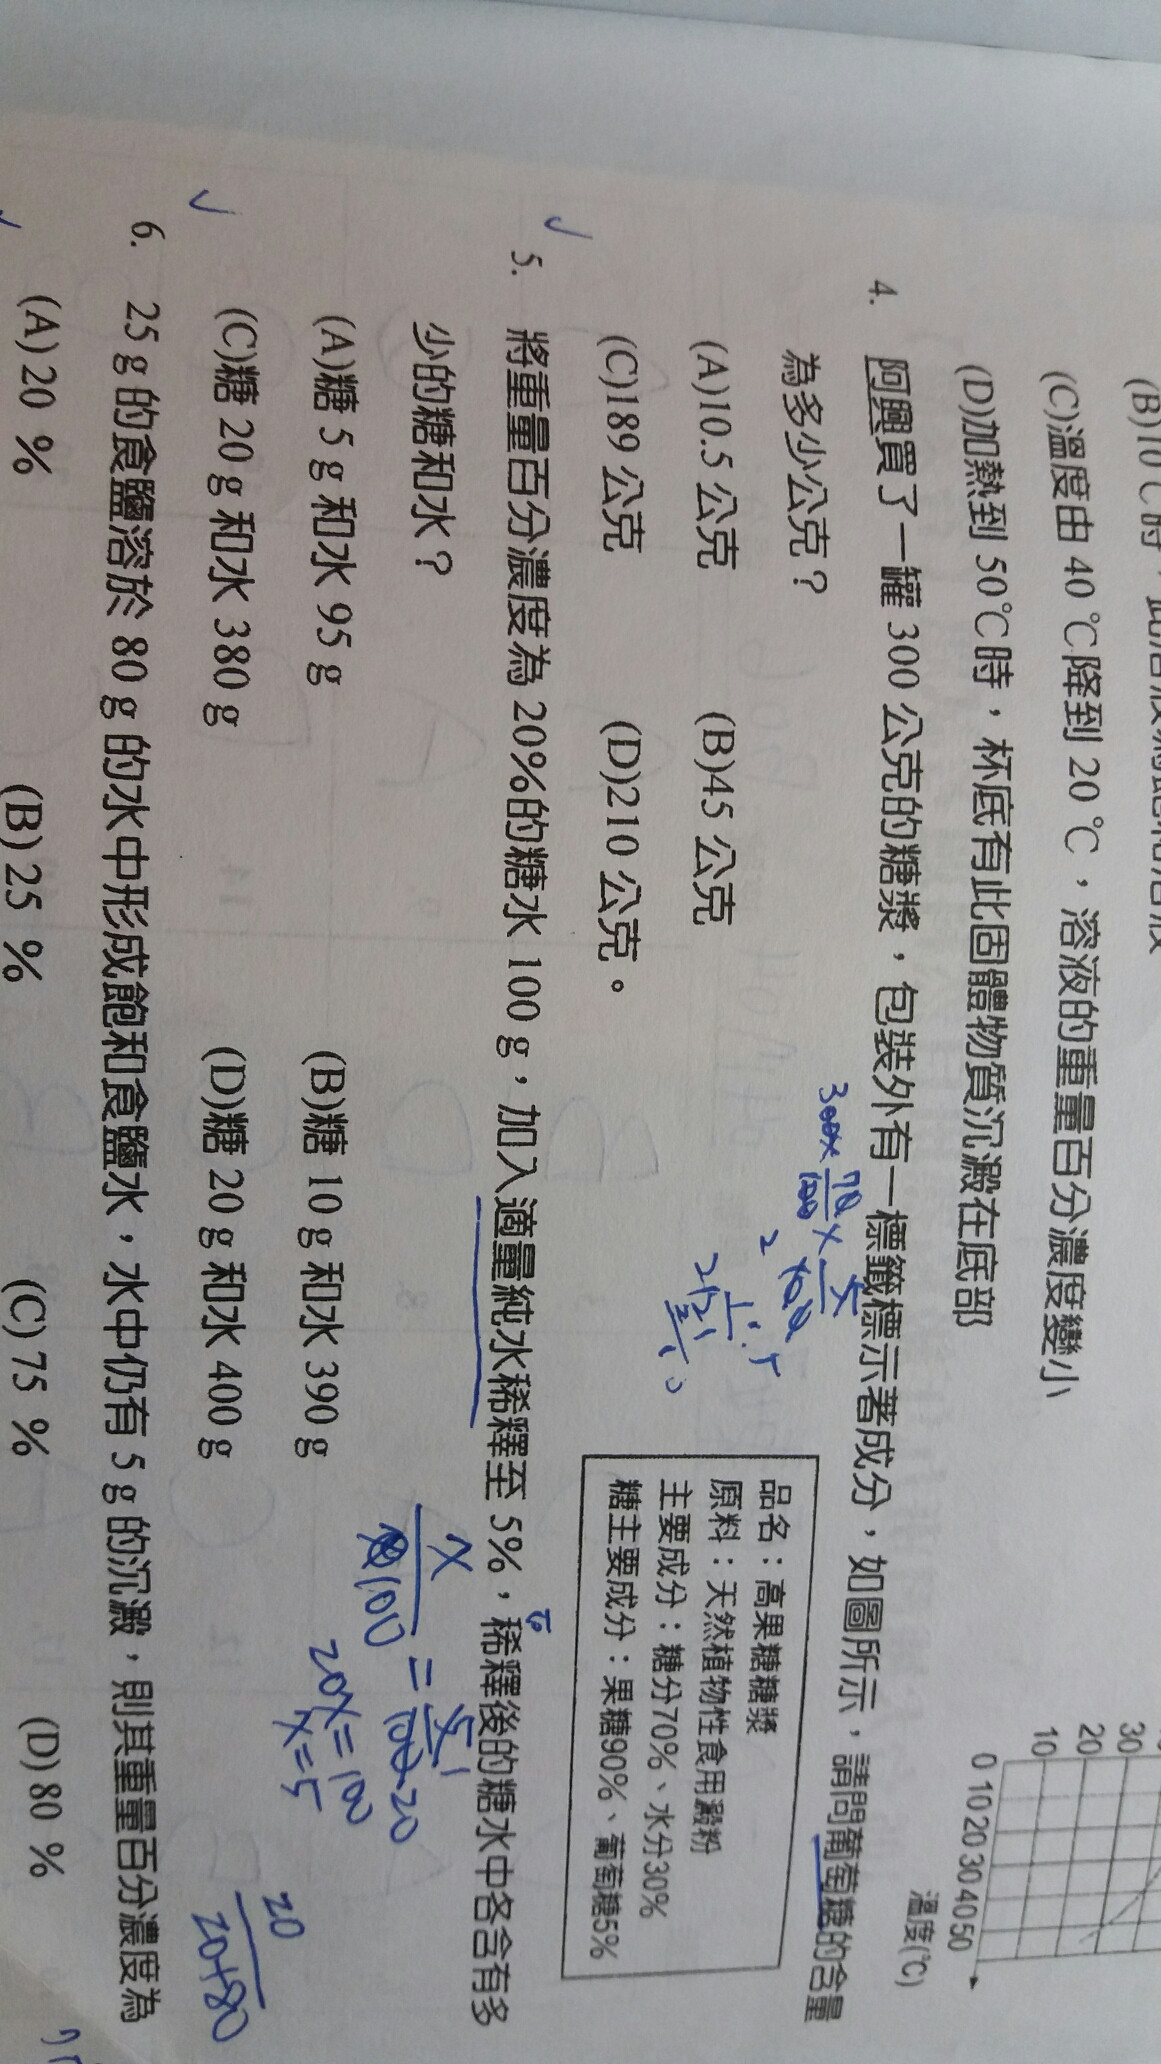 (B)10℃時，此溶液為飽和溶液
(C)溫度由 40 ℃降到 20 ℃，溶液的重量百分濃度變小
(D)加熱到 50℃時，杯底有此固體物質沉澱在底部
30
20
10
0 10 20 30 40 50
溫度(℃)
4. 阿興買了一罐 300 公克的糖漿，包裝外有一標籤標示著成分，如圖所示，請問葡萄糖的含量
為多少公克？
(A)10.5 公克 (B)45 公克
(C)189 公克 (D)210 公克。
300×70/100×5/100
品名：高果糖糖漿
原料：天然植物性食用澱粉
主要成分：糖分70%、水分30%
糖主要成分：果糖90%、葡萄糖5%
5. 將重量百分濃度為 20%的糖水 100 g，加入適量純水稀釋至 5%，稀釋後的糖水中各含有多
少的糖和水？
(A)糖 5 g 和水 95 g (B)糖 10 g 和水 390 g
(C)糖 20 g 和水 380 g (D)糖 20 g 和水 400 g
20X=100
X=5
6. 25 g 的食鹽溶於 80 g 的水中形成飽和食鹽水，水中仍有 5 g 的沉澱，則其重量百分濃度為
(A) 20 % (B) 25 % (C) 75 % (D) 80 %
20
20+80